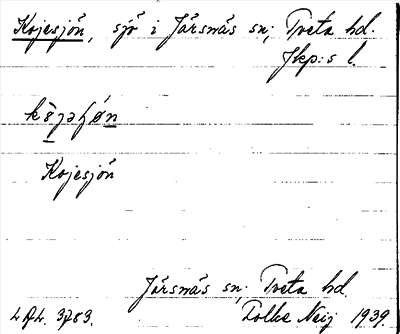 Kojesjön, sjö i Järsnäs sn; Tveta hd.
Jkp:s l.
Kojesjön
Järsnäs sn; Tveta hd.
3783. Folke Neij 1939.